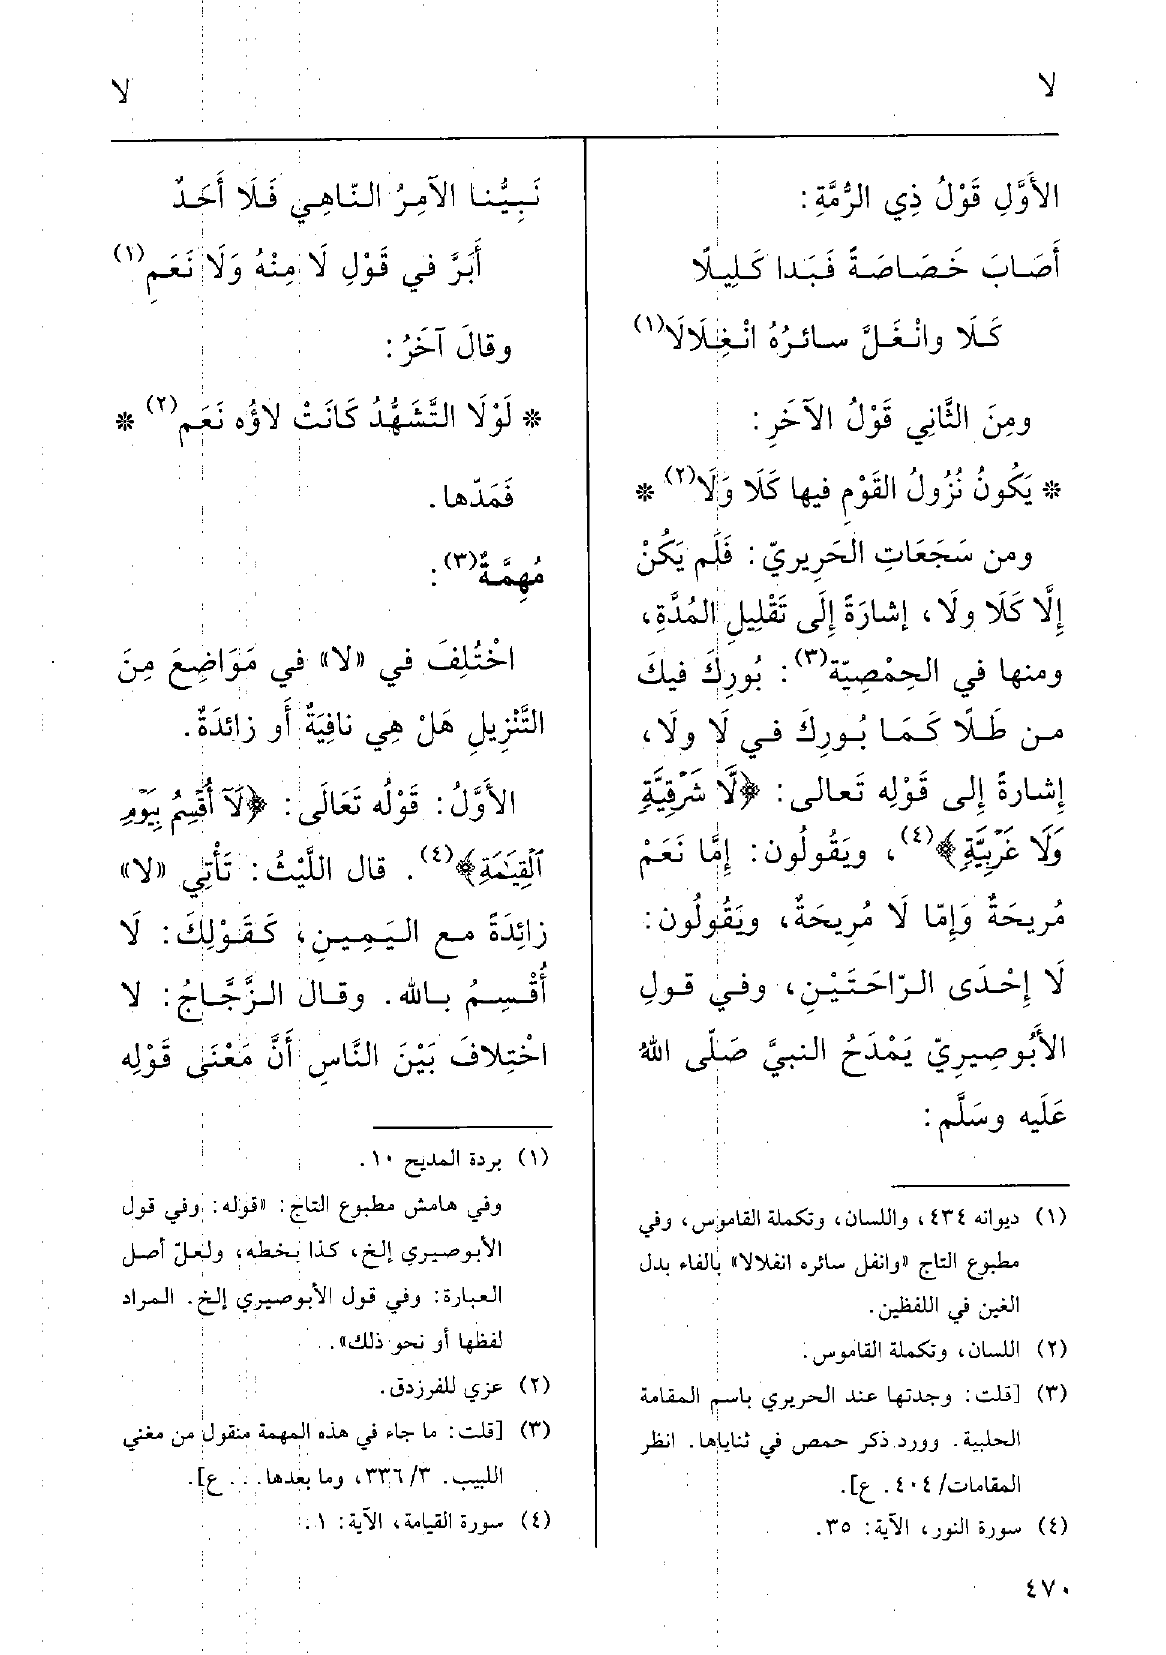 لا
لا
الأَوَّلِ قَوْلُ ذِي الرُّمَّةِ:
أَصَابَ خَصَاصَةً فَبَدا كَلِيلًا
كَلَا وانْغَلَّ سائرُهُ انْغِلَالَا(١)
ومِنَ الثَّانِي قَوْلُ الآخَرِ:
* يَكُونُ نُزُولُ القَوْمِ فيها كَلَا وَلَا(٢) *
ومن سَجَعَاتِ الحَرِيريّ: فَلَم يَكُنْ
إِلَّا كَلَا ولَا، إشارَةً إِلَى تَقْلِيلِ المُدَّةِ،
ومنها في الحِمْصِيّة(٣): بُورِكَ فيكَ
من طَلًا كَمَا بُورِكَ في لَا ولَا،
إشارةً إلى قَوْلِه تَعالى: ﴿لَّا شَرْقِيَّةٍ
وَلَا غَرْبِيَّةٍ﴾(٤)، ويَقُولُون: إِمَّا نَعَمْ
مُرِيحَةٌ وَإِمّا لَا مُرِيحَةٌ، ويَقُولُون:
لَا إِحْدَى الرّاحَتَيْنِ، وفي قولِ
الأَبُوصِيرِيّ يَمْدَحُ النبيَّ صَلّى اللهُ
عَلَيه وسَلَّم:
(١) ديوانه ٤٣٤، واللسان، وتكملة القاموس، وفي
مطبوع التاج «وانفل سائره انفلالا» بالفاء بدل
الغين في اللفظين.
(٢) اللسان، وتكملة القاموس.
(٣) [قلت: وجدتها عند الحريري باسم المقامة
الحلبية. وورد ذكر حمص في ثناياها. انظر
المقامات/ ٤٠٤. ع].
(٤) سورة النور، الآية: ٣٥.
نَبِيُّنا الآمِرُ النّاهِي فَلَا أَحَدٌ
أَبَرَّ في قَوْلِ لَا مِنْهُ وَلَا نَعَمِ(١)
وقالَ آخَرُ:
* لَوْلَا التَّشَهُّدُ كَانَتْ لاؤُه نَعَم(٢) *
فَمَدّها.
مُهِمَّةٌ(٣):
اخْتُلِفَ في «لا» في مَوَاضِعَ مِنَ
التَّنْزِيلِ هَلْ هِي نافِيَةٌ أَو زائدَةٌ.
الأَوَّلُ: قَوْلُه تَعَالَى: ﴿لَآ أُقْسِمُ بِيَوْمِ
ٱلْقِيَٰمَةِ﴾(٤). قال اللَّيْثُ: تَأْتِي «لا»
زائِدَةً مع اليَمِينِ، كَقَوْلِكَ: لَا
أُقْسِمُ بالله. وقال الزَّجَّاجُ: لا
اخْتِلافَ بَيْنَ النَّاسِ أَنَّ مَعْنَى قَوْلِه
(١) بردة المديح ١٠.
وفي هامش مطبوع التاج: «قوله: وفي قول
الأبوصيري إلخ، كذا بخطه، ولعلّ أصل
العبارة: وفي قول الأبوصيري إلخ. المراد
لفظها أو نحو ذلك».
(٢) عزي للفرزدق.
(٣) [قلت: ما جاء في هذه المهمة منقول من مغني
اللبيب. ٣/ ٣٣٦، وما بعدها. . . ع].
(٤) سورة القيامة، الآية: ١.
٤٧٠